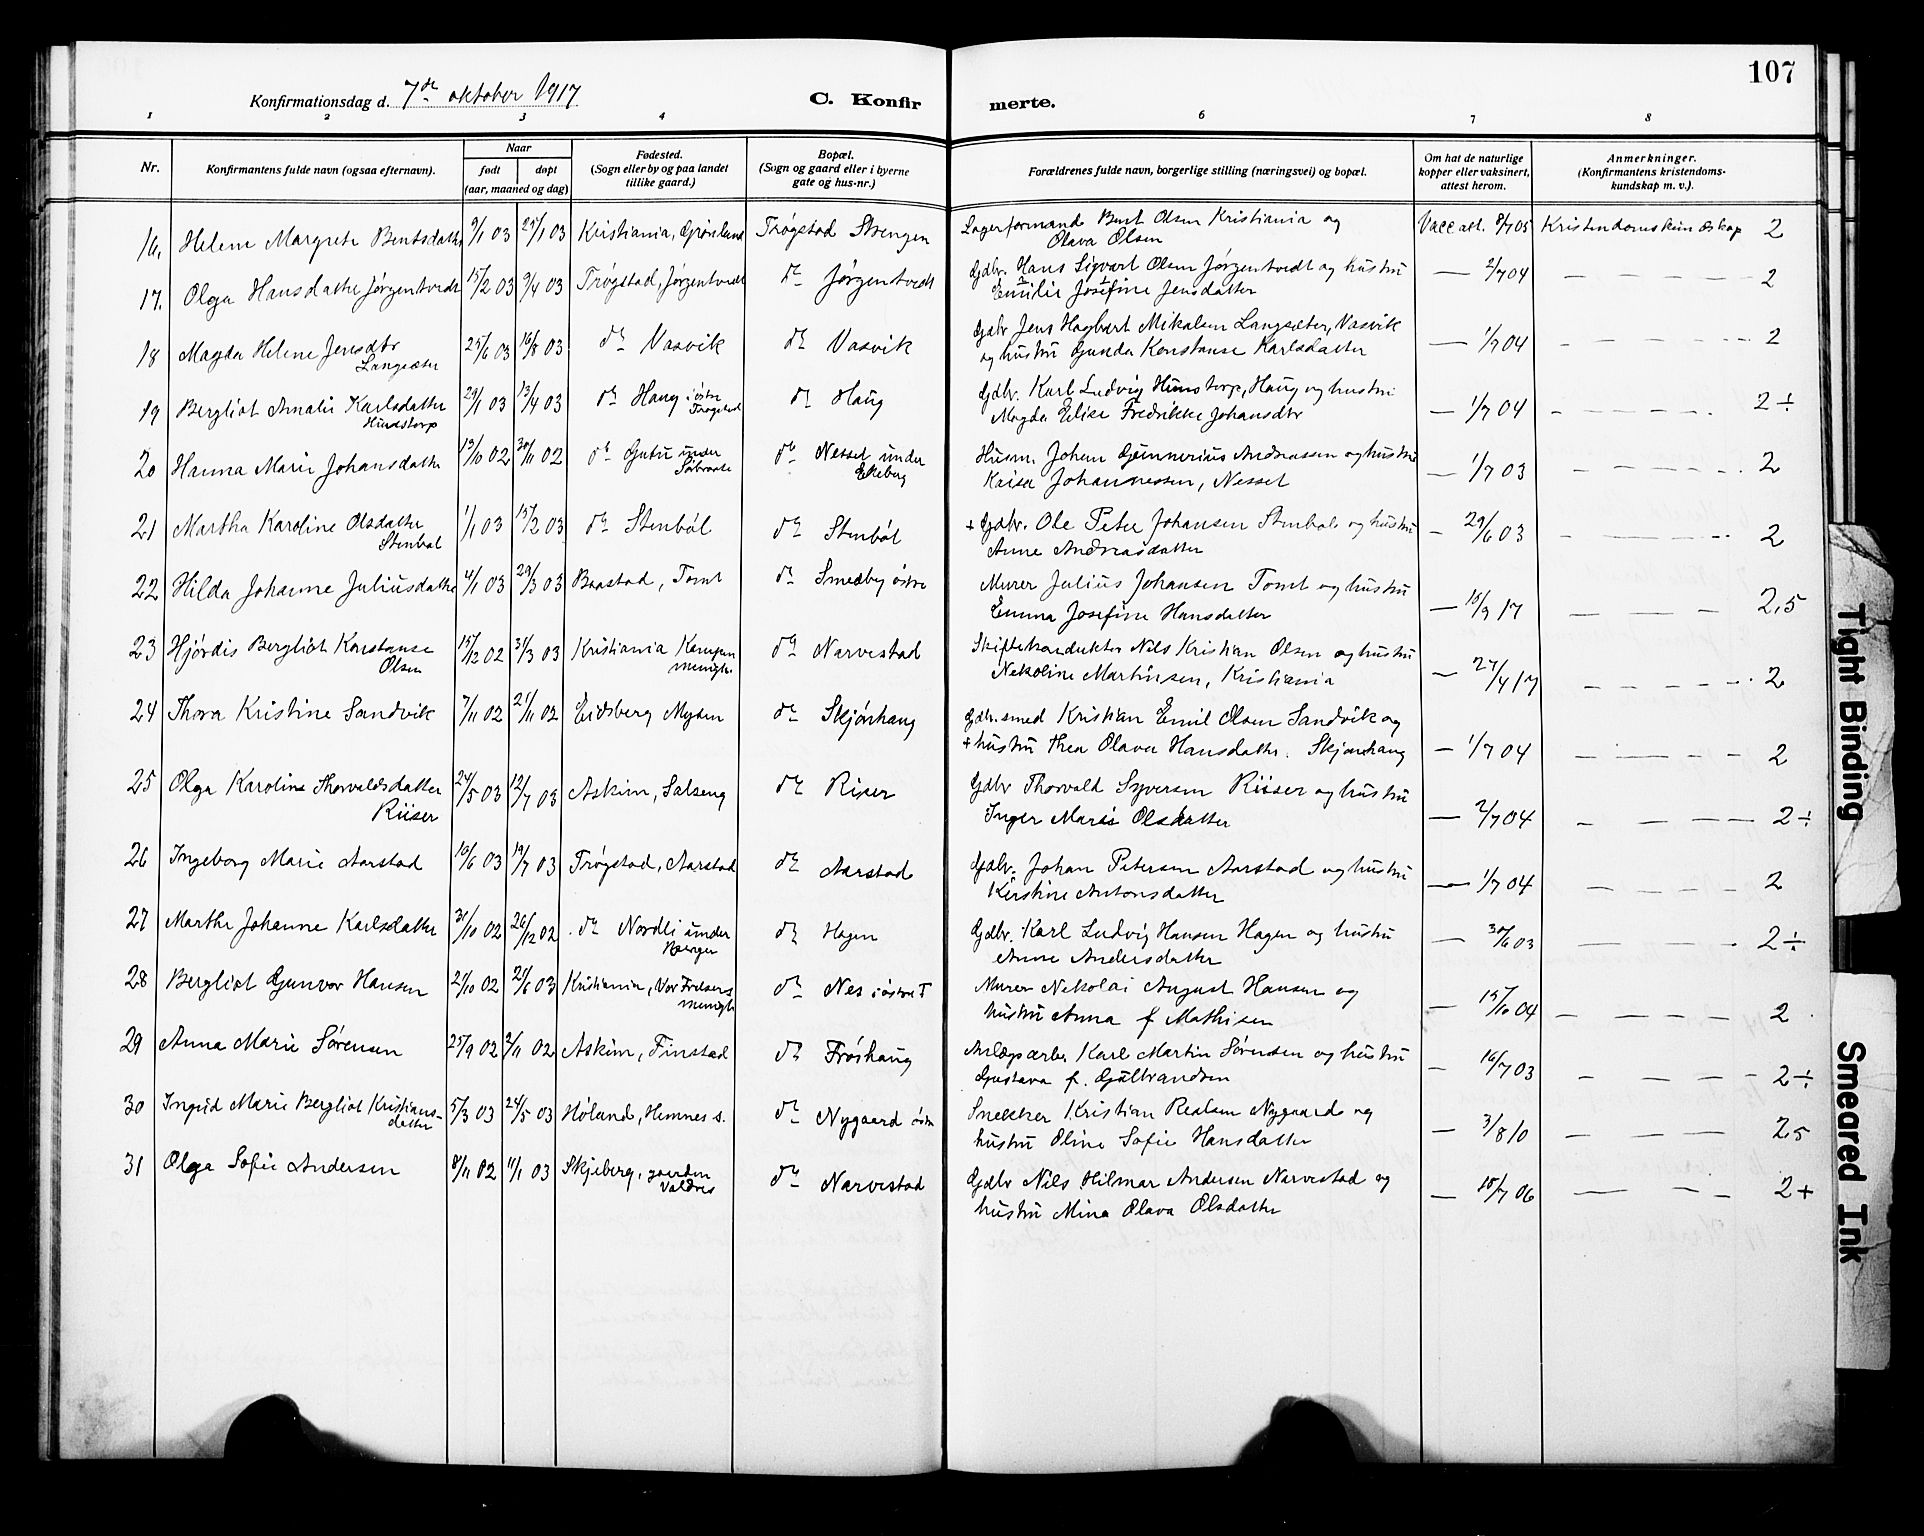 107
Konfirmationsdag d. 7de oktober 1917
C. Konfirmerte.
1 2 3 4 5 6 7 8
Nr. Konfirmantens fulde navn (ogsaa efternavn). Naar født døpt (aar, maaned og dag) Fødested. (Sogn eller by og paa landet tillike gaard.) Bopæl. (Sogn og gaard eller i byerne gate og hus-nr.) Forældrenes fulde navn, borgerlige stilling (næringsvei) og bopæl. Om hat de naturlige kopper eller vaksinert, attest herom. Anmerkninger. (Konfirmantens kristendomskundskap m. v.).
16. Helene Margrete Berntsdatter 9/1 03 25/1 03 Kristiania, Grønland Trøgstad Strengen Lagerformand Bernt Olsen Kristiania og Vacc att. 8/7 05 Kristendomskundskap 2
Olava Olsen
17. Olga Hansdatter Jørgentvedt 15/2 03 9/4 03 Trøgstad, Jørgentvedt do Jørgentvedt Gdbr. Hans Sigvart Olsen Jørgentvedt og hustru — 2/7 04 — — — — 2
Emilie Josefine Jensdatter
18 Magda Helene Jensdtr 25/6 03 16/8 03 do Vasvik do Vasvik Gdbr Jens Hagbart Mikalsen Langsæter, Vasvik — 1/7 04 — — — — 2
Langsæter og hustru Gunda Konstanse Karlsdatter
19 Bergliot Amalie Karlsdatter 29/1 03 13/4 03 do Haug i østre Trøgstad do Haug Gdbr. Karl Ludvig Hunstorp, Haug og hustru — 1/7 04 — — — — 2÷
Hundstorp Magda Elise Fredrikke Johansdtr
20 Hanna Marie Johansdatter 19/10 02 30/11 02 do Gutu under do Nesset under Ekeberg Husm. Johan Gunnerius Andreassen og hustru — 1/7 03 — — — — 2
Kaisa Johannessen, Nesset
21 Martha Karoline Olsdatter 1/1 03 15/2 03 do Stenbøl do Stenbøl + Gdbr. Ole Peter Johansen Stenbøl og hustru — 29/6 03 — — — — 2
Stenbøl Anne Andreasdatter
22 Hilda Johanne Juliusdatter 4/1 03 29/3 03 Baastad, Tomt do Smedby østre Murer Julius Johansen Tomt og hustru — 15/9 17 — — — 2,5
Emma Josefine Hansdatter
23 Hjördis Bergliot Konstanse 15/12 02 31/3 03 Kristiania Kampen menigh. do Narvestad Skiftekonduktør Nils Kristian Olsen og hustru — 27/4 17 — — — — 2
Olsen Nekoline Martinsen, Kristiania
24 Thora Kristine Sandvik 7/11 02 21/11 02 Eidsberg Mysen do Skjönhaug Gdbr. smed Kristian Emil Olsen Sandvik og — 1/7 04 — — — 2
+ hustru Thea Olava Hansdatter. Skjønhaug
25 Olga Karoline Thorvaldsdatter 24/5 03 12/7 03 Askim, Salseng do Riser Gdbr Thorvald Syversen Riiser og hustru — 2/7 04 — — — — 2÷
Riiser Inger Marie Olsdatter
26 Ingeborg Marie Aarstad 16/6 03 19/7 03 Trøgstad, Aarstad do Aarstad Gdbr. Johan Petersen Aarstad og hustru — 1/7 04 — — — — 2
Kirstine Antonsdatter
27 Marthe Johanne Karlsdatter 31/10 02 26/12 02 do Nordli under Berger do Hagen Gdbr. Karl Ludvig Hansen Hagen og hustru — 30/6 03 — — — — 2÷
Anne Andersdatter
28 Bergliot Gunvor Hansen 21/10 02 21/6 03 Kristiania, Vor Frelsers menigh do Nes i østre T Murer Nekolai August Hansen og — 15/10 04 — — — — 2
hustru Anna f Mathisen
29 Anna Marie Sørensen 25/9 02 2/11 02 Askim, Finstad do Frøshaug Anlægsarb. Karl Martin Sørensen og hustru — 16/7 03 — — — — 2÷
Gustava f. Gulbrandsen
30 Ingrid Marie Bergliot Kristians- 5/3 03 24/5 03 Høland, Hemnes s. do Nygaard østre Snekker Kristian Realsen Nygaard og — 3/8 10 — — — 2,5
datter hustru Oline Sofie Hansdatter
31 Olga Sofie Andersen 8/11 02 11/1 03 Skjeberg, gaarden Valdres do Narvestad Gdbr Nils Hilmar Andersen Narvestad og — 15/7 06 — — — 2+
hustru Mina Olava Olsdatter
Tight Binding
Smeared Ink